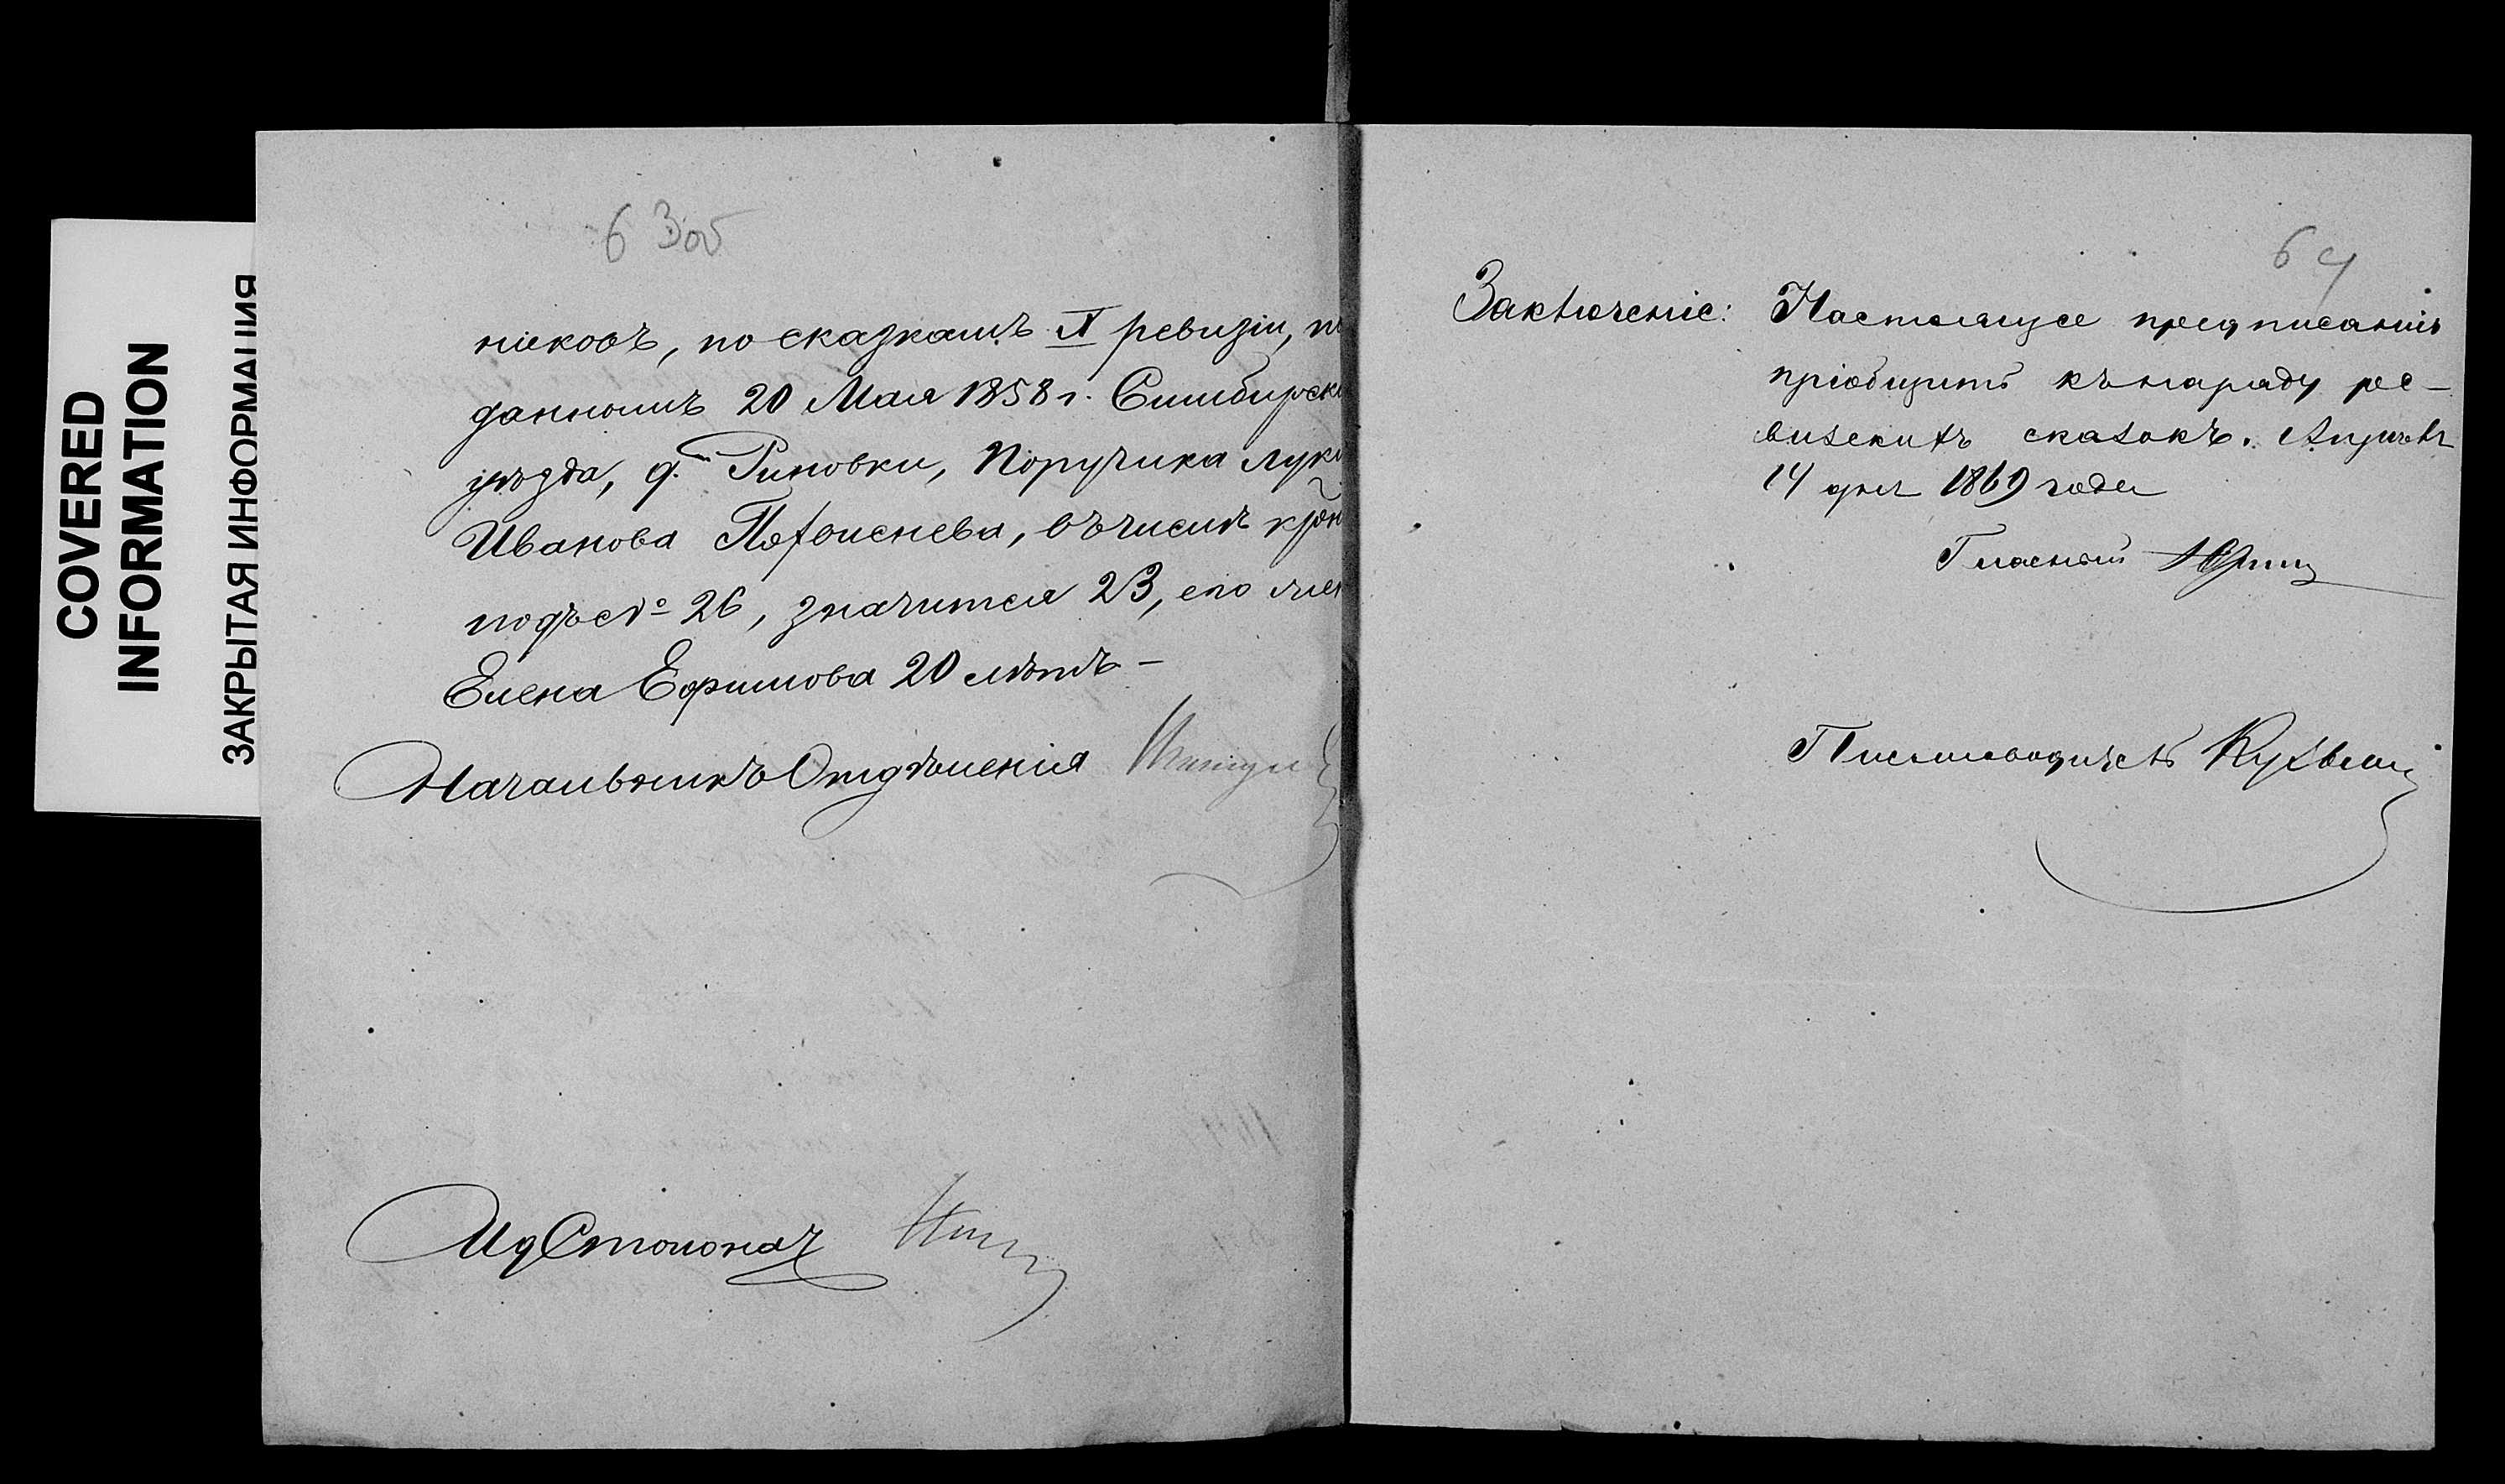 COVERED
INFORMATION
ЗАКРЫТАЯ ИНФОРМАЦИЯ
63об
никовъ, по сказкамъ X ревизіи, по
даннымъ 20 Мая 1858 г. Симбирск
уѣзда, д. Риновки, Поручика Лук
Иванова Пофсиенева, въ числѣ
подъ № 26, значится 23, его
Елена Ефимова 20 лѣтъ –
Начальникъ Отдѣленія
ИдСтолонач
64
Заключеніе: Настоящее предписаніе
пріобщить къ наряду ре–
визскихъ сказокъ. Апрѣля
14 дня 1869 года
Гласный
Письмоводитель